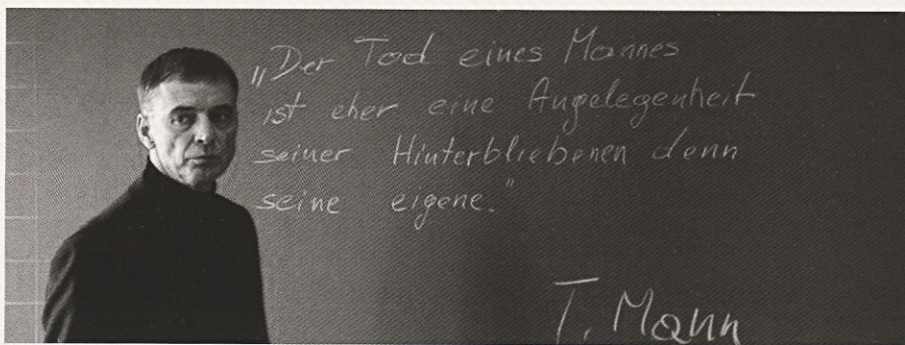 „Der Tod eines Mannes
ist eher eine Angelegenheit
seiner Hinterbliebenen denn
seine eigene."
T. Mann